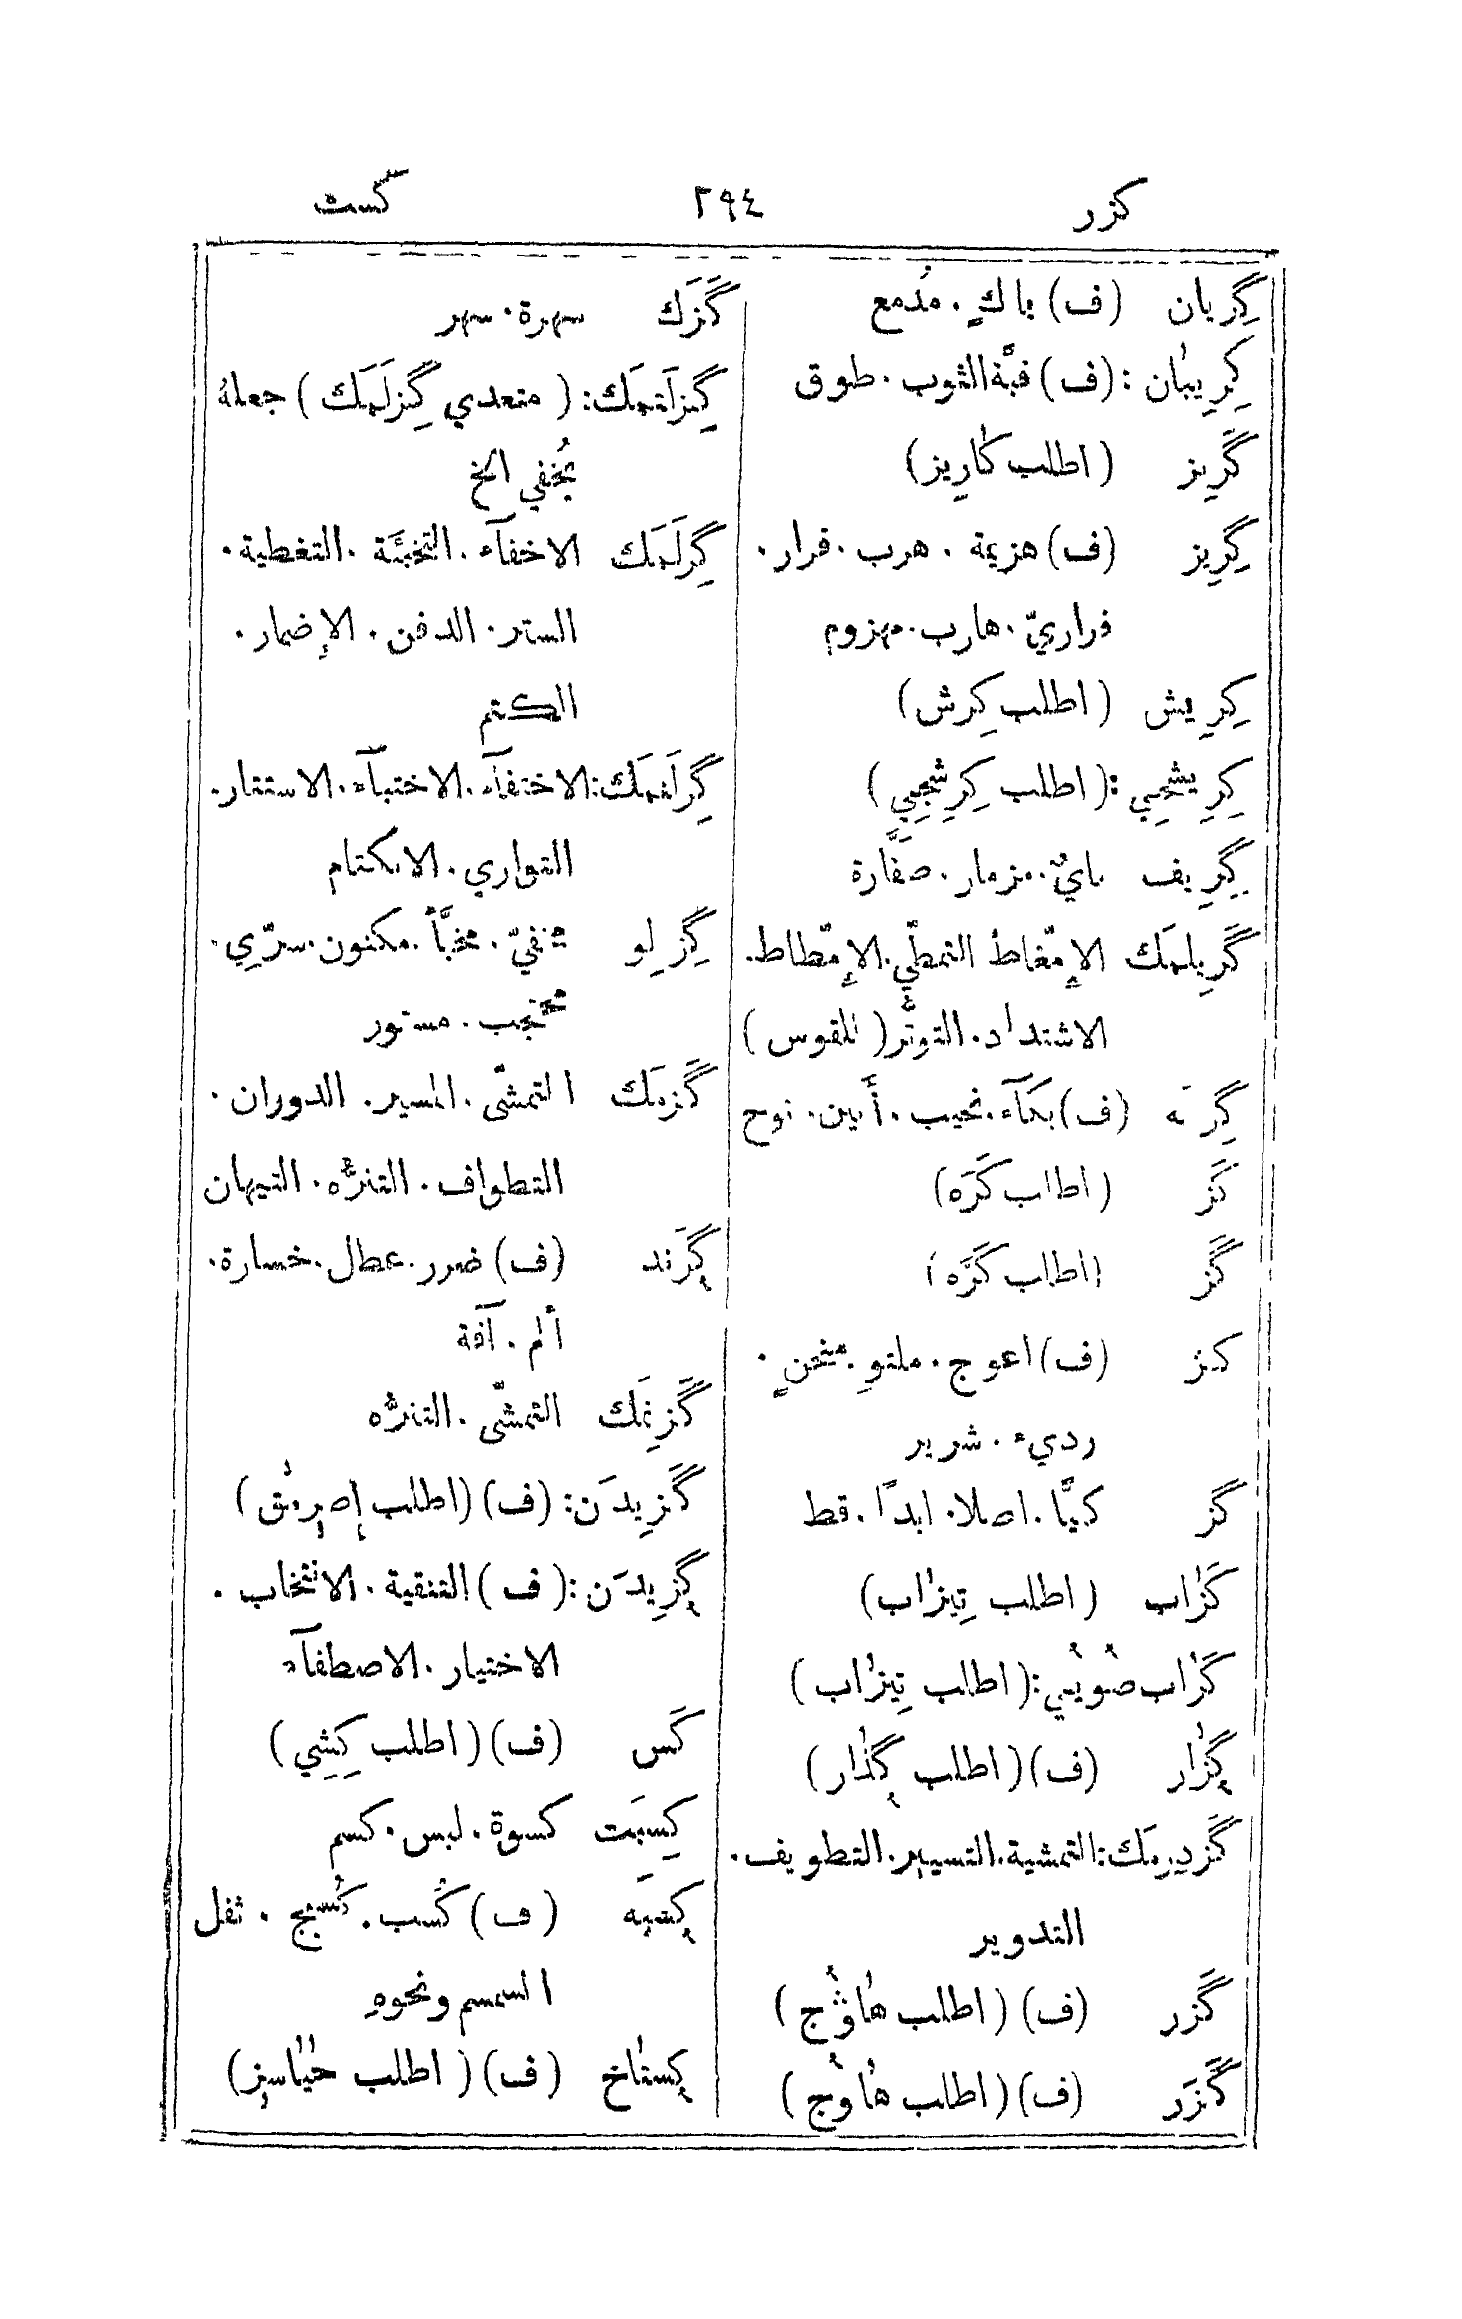 كزر ٢٩٤ كست
گِريان (ف) باكٍ . مُدمع
كِرِيبان : (ف) قبَّة الثوب . طوق
گَرِيز (اطلب كاريز)
گِرِيز (ف) هزيمة . هرب . فرار .
فراريّ . هارب . مهزوم
كِرِيش (اطلب كِرش)
كِرِيشجِي : (اطلب كِرِشجِي)
گِرِيف نايٌ . مزمار . صفَّارة
گَرِيلمَك الإمّغاط التمطّي . الإمّطاط .
الاشتداد . التوتُّر (للقوس)
گِريَه (ف) بكآء . نحيب . أَنين . نوح
كَز (اطلب كَرَه)
گَز (اطلب كَرَّه)
كز (ف) اعوج . ملتوٍ . منحنٍ .
رديء . شرير
گز كيًّا . اصلا . ابدًا . قط
كَزاب (اطلب تِيزاب)
كَزاب صُويُي : (اطلب تِيزاب)
گُزار (ف) (اطلب گُذار)
گَزدِرِمَك : التمشية . التسيير . التطويف .
التدوير
گَزر (ف) (اطلب هاوُج)
گَزَر (ف) (اطلب هاوُج)
گَزَك سهرة . سهر
گِزلَتمَك : (متعدي گِزلَمَك) جعلهُ
يُخفي الخ
گِزلَمَك الاخفآء . التخبئَة . التغطية .
الستر . الدفن . الإضمار .
الكتم
گِزلَنمَك : الاختفآء . الاختبآء . الاستتار .
التواري . الانكتام
گِزلِو مخفيّ . مخبَّأ . مكنون . سرّي .
محتجب . مستور
گَزمَك التمشّي . المسير . الدوران .
التطواف . التنزُّه . التيهان
گَزَند (ف) ضرر . عطال . خسارة .
ألم . آفة
گَزِنمَك التمشّي . التنزُّه
گَزِيدَن : (ف) (اطلب إصرمق)
گُزِيدَن : (ف) التنقية . الانتخاب .
الاختيار . الاصطفآء
كَس (ف) (اطلب كِشِي)
كِسبَت كسوة . لبس . كسم
كُسبَه (ف) كُسب . كُسبج . ثفل
السمسم ونحوهِ
گُستاخ (ف) (اطلب حياسز)